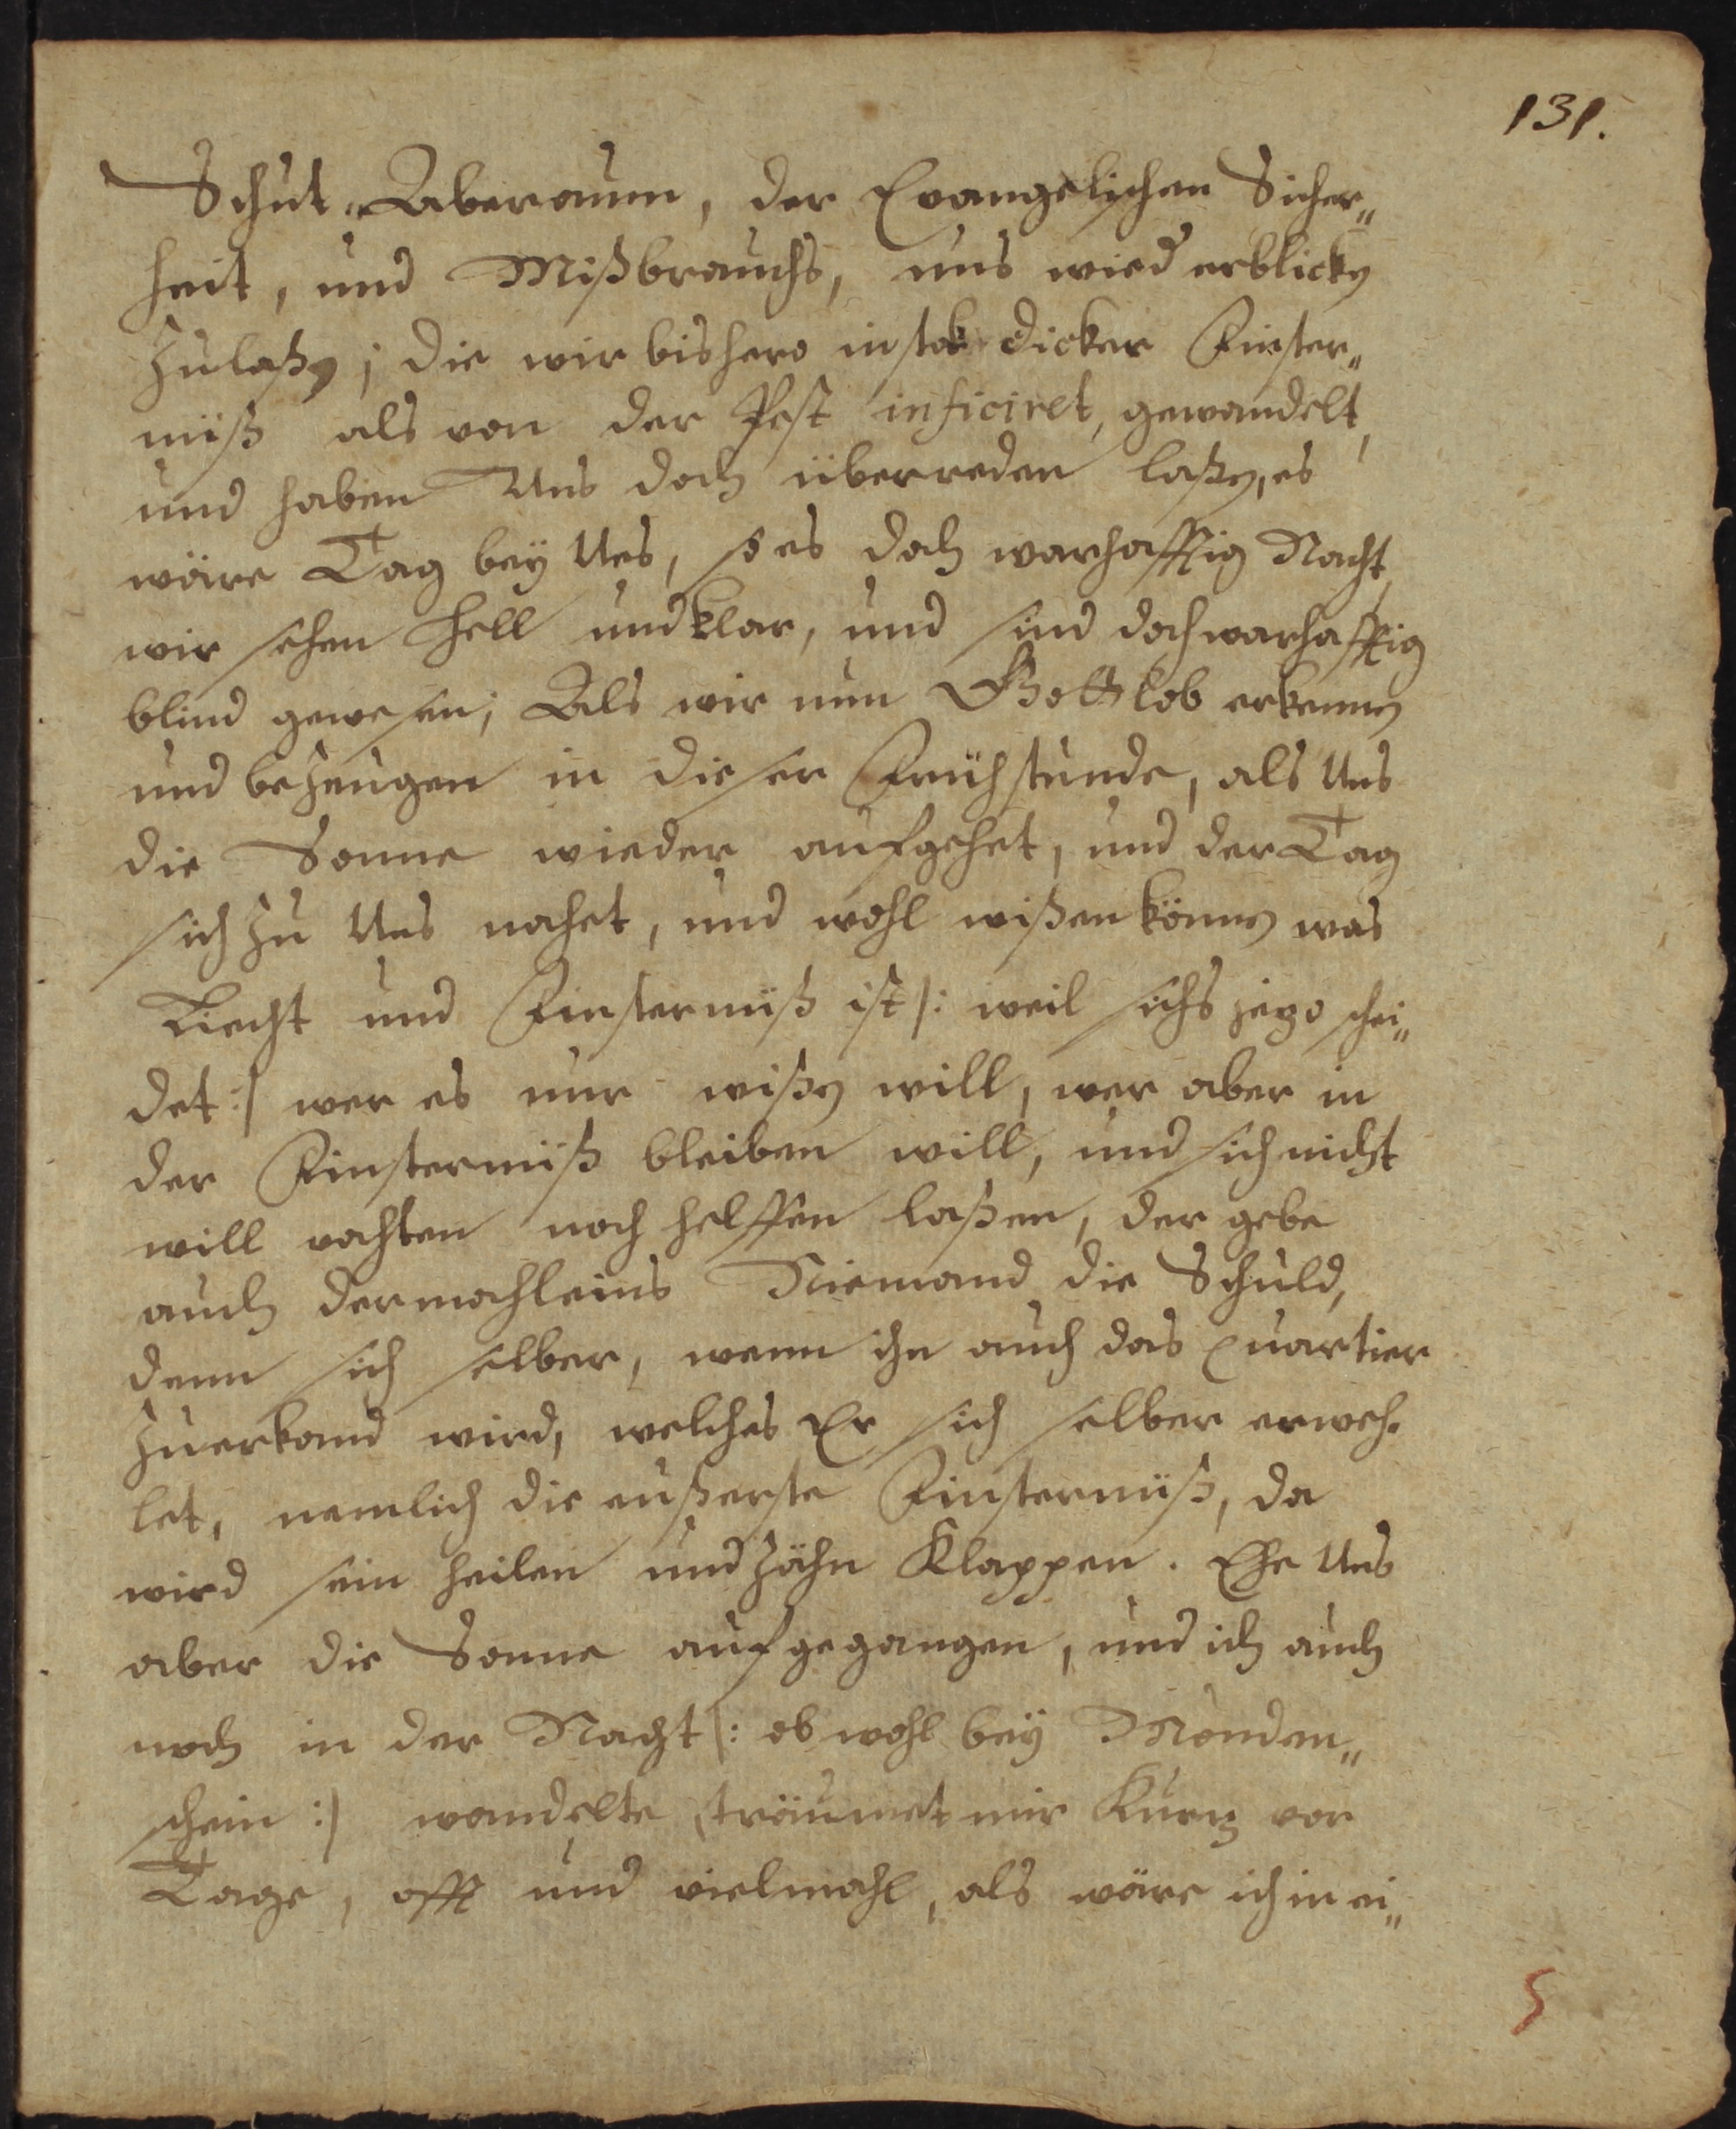 131.
Schut, Aberaum, der Evangelischen Sicher„
heit, und Mißbrauchs, uns wied erblicken
zulaßen; die wir bishero in stok dicker Finster„
nüß als von der Pest inficiret, gewandelt,
und haben Uns doch überreden laßen, es
wäre Tag bey Uns, so es doch warhafftig Nacht,
wir sehen hell und klar, und sind doch warhafftig
blind gewesen; Als wir nun Gott lob erkennen
und bezeugen in dieser Frühstunde, als Uns
die Sonne wieder aufgehet, und der Tag
sich zu Uns nahet, und wohl wißen können was
Liecht und Finsternüß ist /: weil sichs jezo schei„
det :/ wer es nur wißen will, wer aber in
der Finsternüß bleiben will, und sich nicht
will rathen noch helffen laßen, der gebe
auch dermahleins Niemand die Schuld,
denn sich selber, wenn ihn auch das quartier
zuerkand wird, welches Er sich selber erweh„
let, nemlich die eußerste Finsternüß, da
wird sein heilen und Zähn Klappen. Ehe Uns
aber die Sonne aufgegangen, und ich auch
noch in der Nacht /: ob wohl bey Monden„
schein :/ wandelte, träumet mir Kurtz vor
Tage, offt und vielmahl, als wäre ich in ei„
5